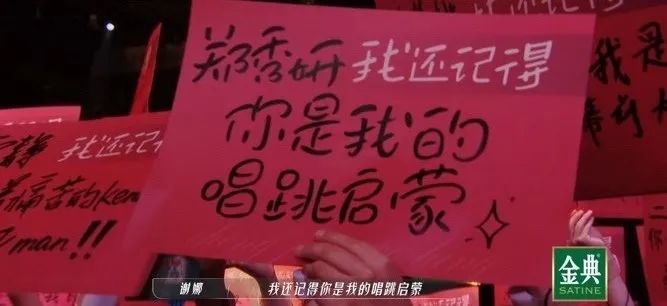 郑秀妍 我还记得
你是我的
唱跳启蒙
我还记得
痛苦的ken
man!!
我是
谢娜
我还记得你是我的唱跳启蒙
金典
SATINE